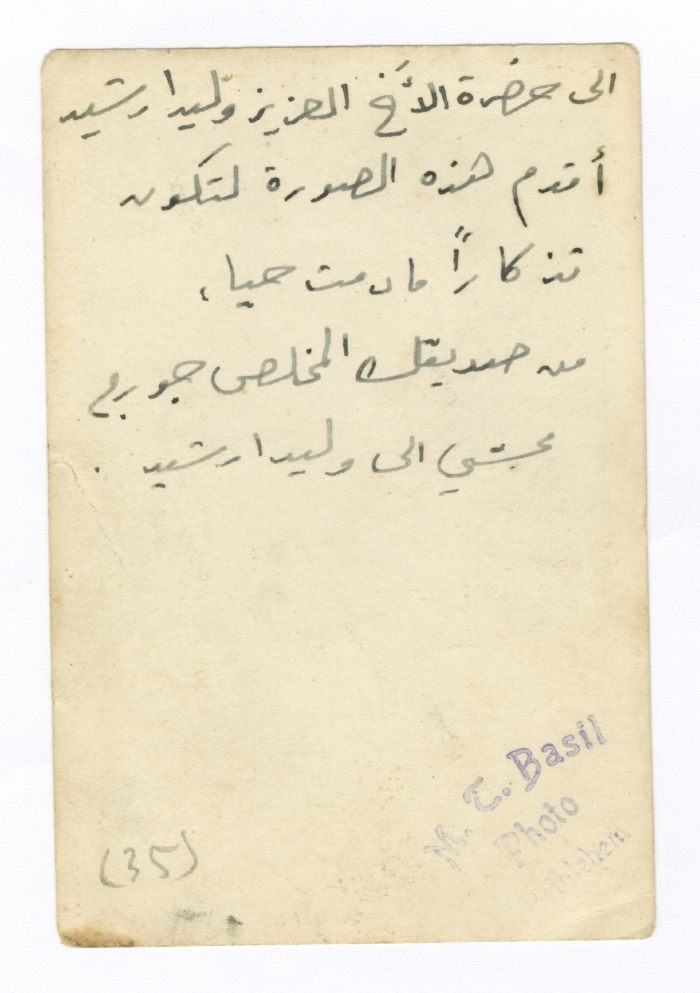 الى حضرة الأخ العزيز وليدا رشيد
أقدم هذه الصورة لتكون
تذكاراً ما دمت حيا،
من صديقك المخلص جورج
الى وليدا رشيد .
M. T. Basil
Photo
Bethlehem
(35)